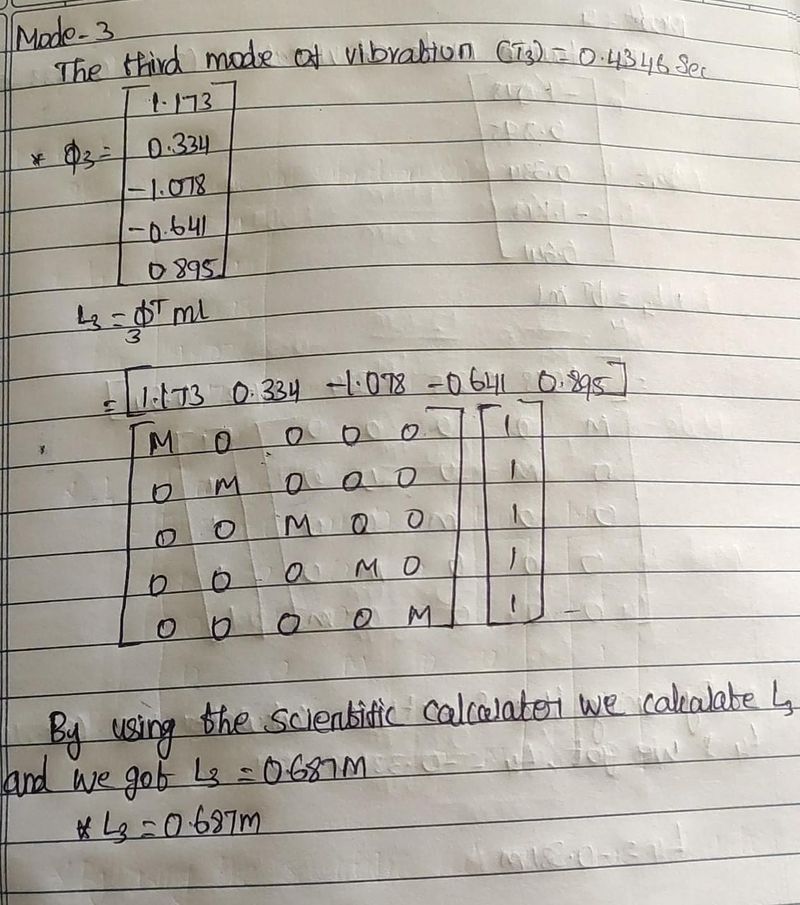 Mode-3
The third mode of vibration (T3) = 0.4346 Sec
* ϕ3 = [1.173
0.334
-1.078
-0.641
0.895]
L3 = ϕ3ᵀ ml
= [1.173 0.334 -1.078 -0.641 0.895]
[M 0 0 0 0] [1
0 M 0 0 0 1
0 0 M 0 0 1
0 0 0 M 0 1
0 0 0 0 M] 1]
By using the scientific calculator we calculate L3
and we got L3 = 0.687M
* L3 = 0.687m